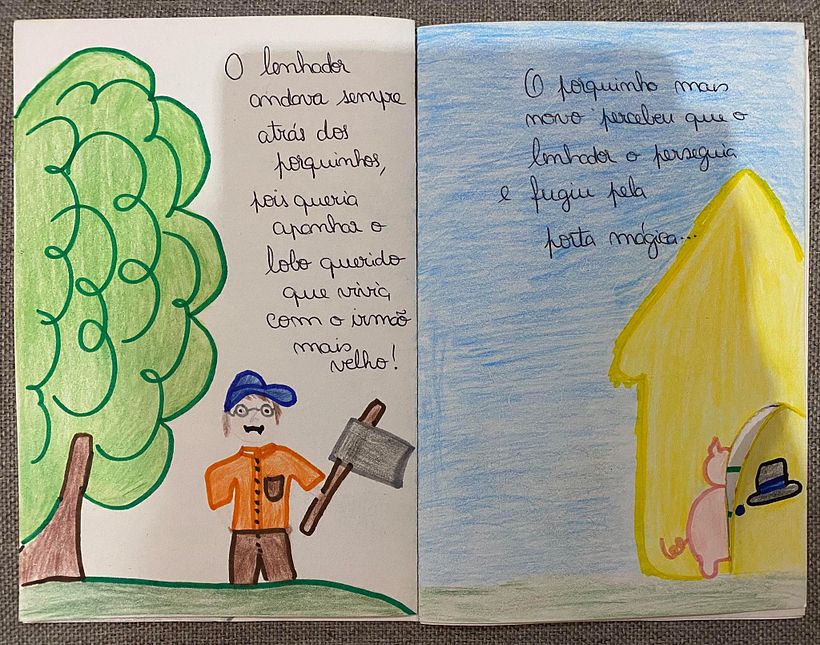 O lenhador
andava sempre
atrás dos
porquinhos,
pois queria
apanhar o
lobo querido
que vivia
com o irmão
mais
velho!
O porquinho mais
novo percebeu que o
lenhador o perseguia
e fugiu pela
porta mágica...